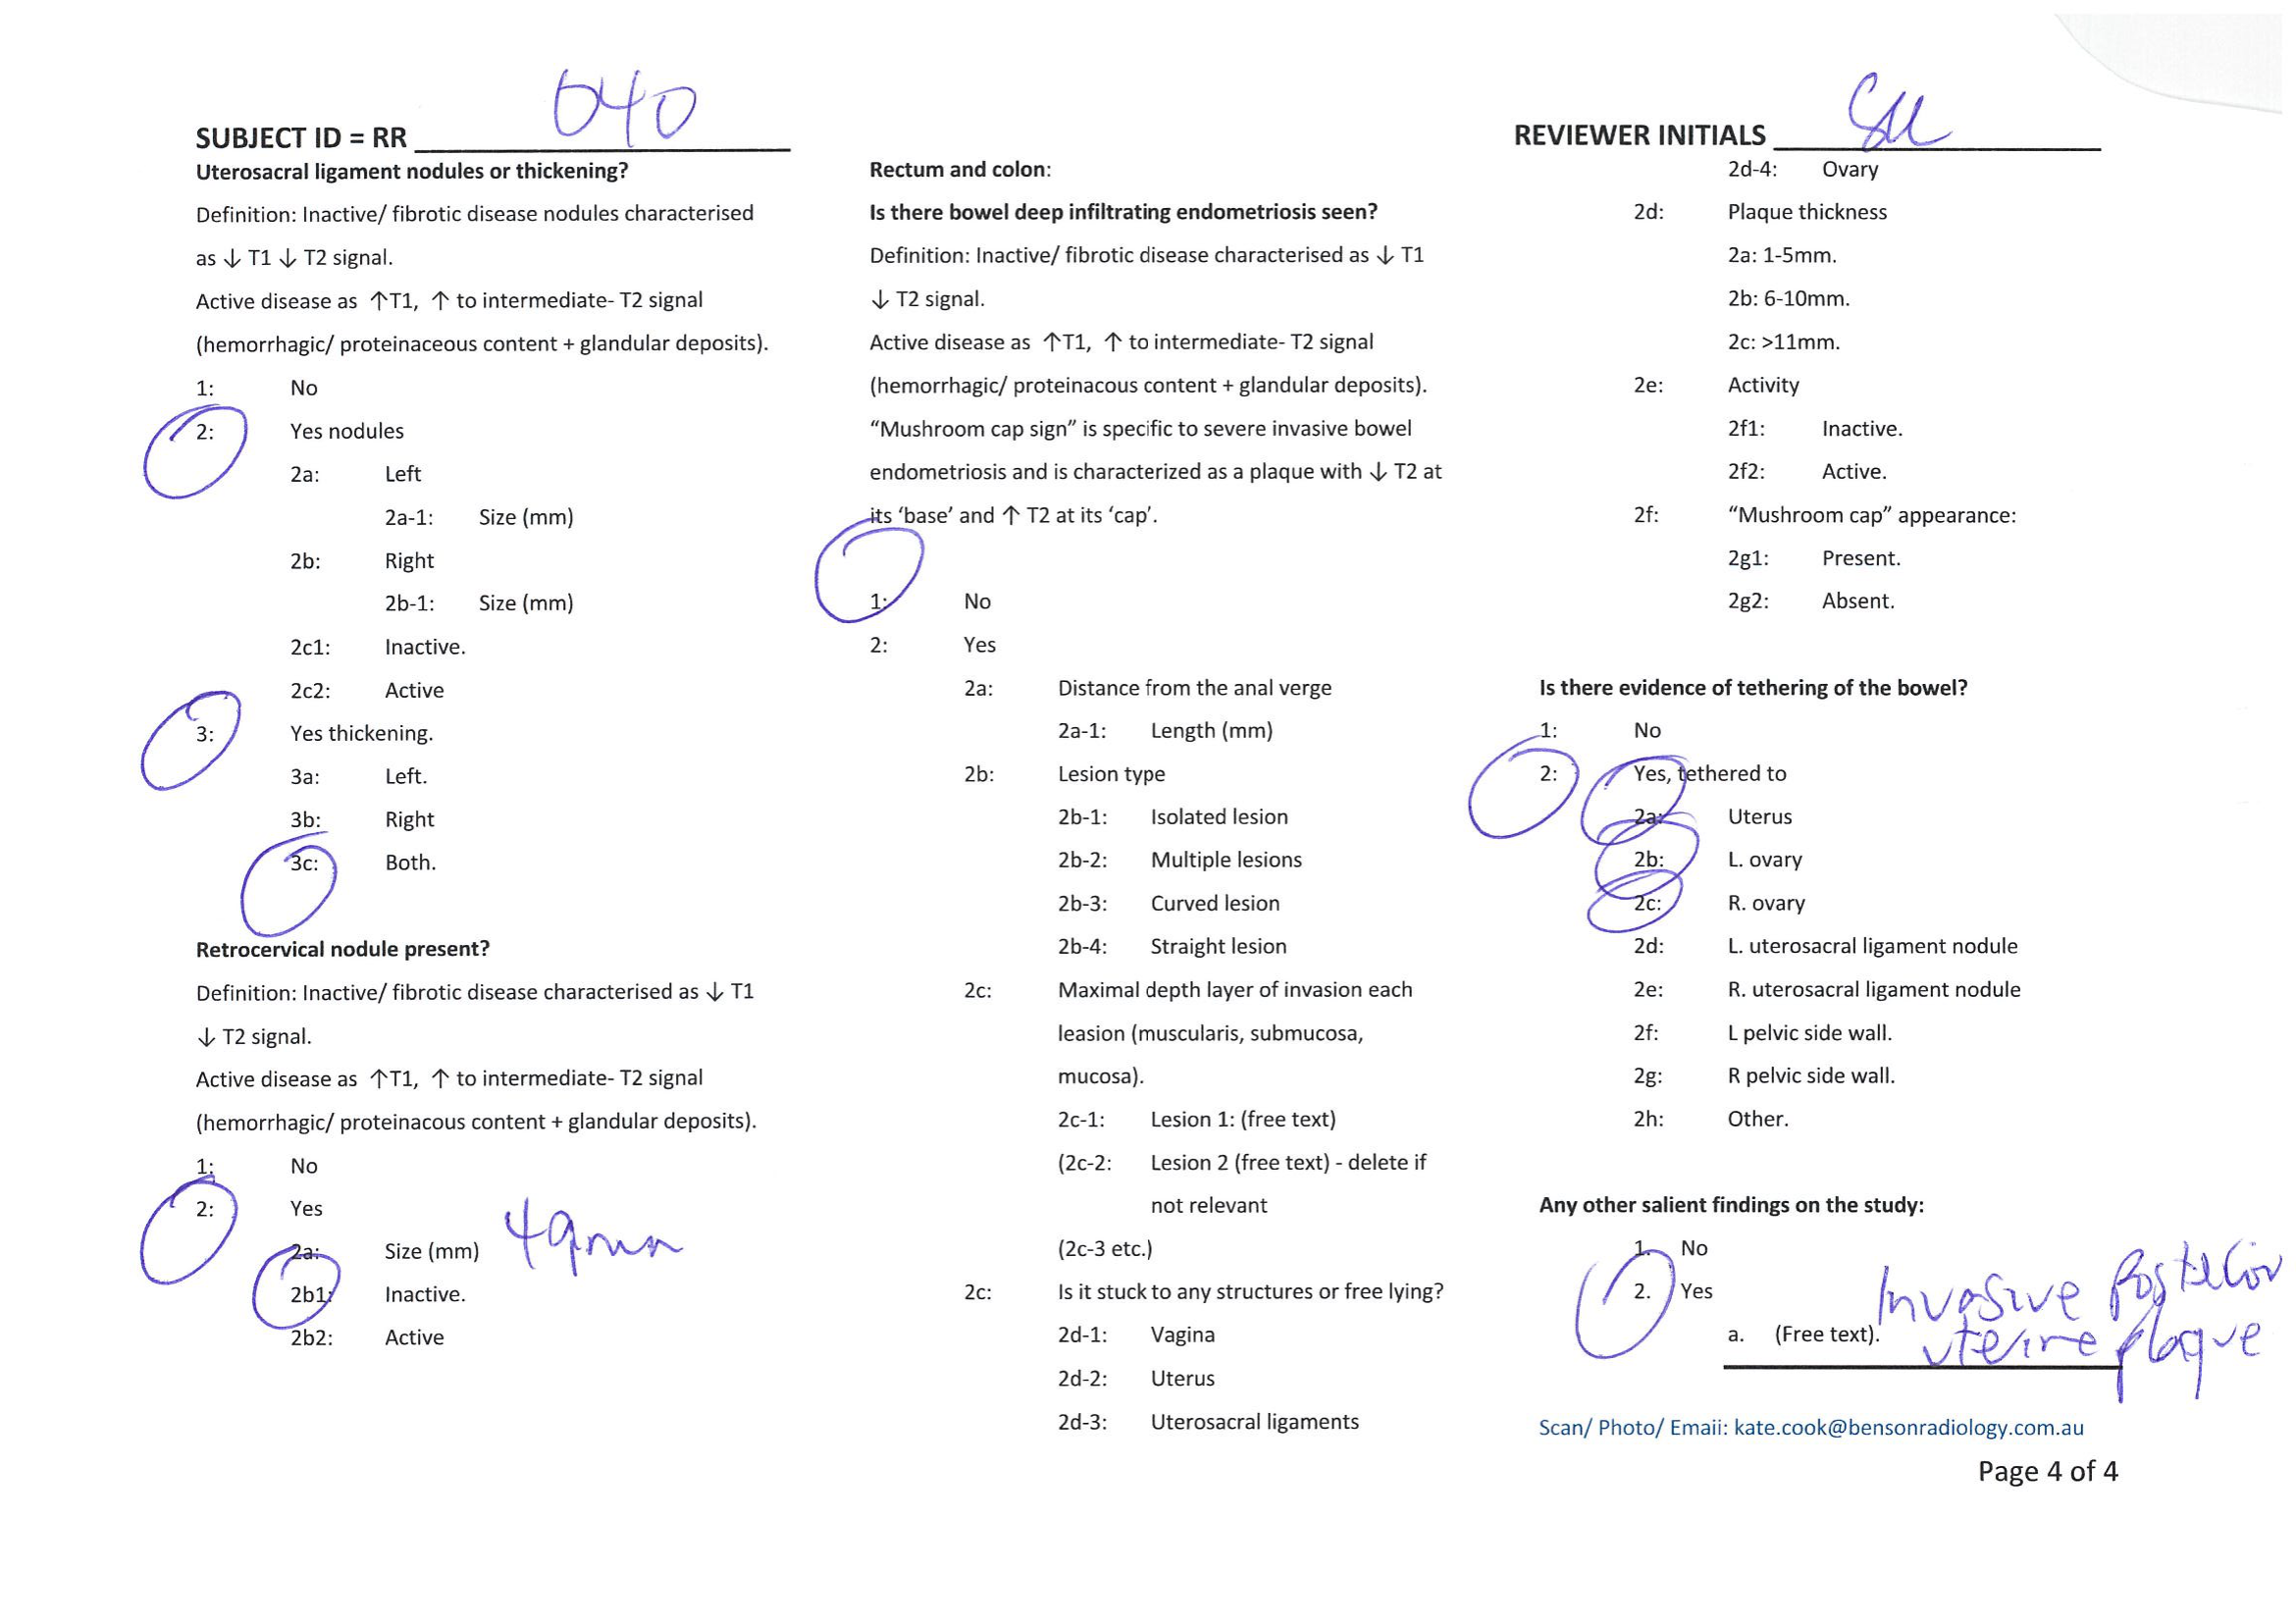 SUBJECT ID = RR 040
REVIEWER INITIALS
Uterosacral ligament nodules or thickening?
Definition: Inactive/ fibrotic disease nodules characterised
as ↓ T1 ↓ T2 signal.
Active disease as ↑T1, ↑ to intermediate- T2 signal
(hemorrhagic/ proteinaceous content + glandular deposits).
1: No
2: Yes nodules
2a: Left
2a-1: Size (mm)
2b: Right
2b-1: Size (mm)
2c1: Inactive.
2c2: Active
3: Yes thickening.
3a: Left.
3b: Right
3c: Both.
Retrocervical nodule present?
Definition: Inactive/ fibrotic disease characterised as ↓ T1
↓ T2 signal.
Active disease as ↑T1, ↑ to intermediate- T2 signal
(hemorrhagic/ proteinacous content + glandular deposits).
1: No
2: Yes
2a: Size (mm) 49mm
2b1: Inactive.
2b2: Active
Rectum and colon:
Is there bowel deep infiltrating endometriosis seen?
Definition: Inactive/ fibrotic disease characterised as ↓ T1
↓ T2 signal.
Active disease as ↑T1, ↑ to intermediate- T2 signal
(hemorrhagic/ proteinacous content + glandular deposits).
“Mushroom cap sign” is specific to severe invasive bowel
endometriosis and is characterized as a plaque with ↓ T2 at
its ‘base’ and ↑ T2 at its ‘cap’.
1: No
2: Yes
2a: Distance from the anal verge
2a-1: Length (mm)
2b: Lesion type
2b-1: Isolated lesion
2b-2: Multiple lesions
2b-3: Curved lesion
2b-4: Straight lesion
2c: Maximal depth layer of invasion each
leasion (muscularis, submucosa,
mucosa).
2c-1: Lesion 1: (free text)
(2c-2: Lesion 2 (free text) - delete if
not relevant
(2c-3 etc.)
2c: Is it stuck to any structures or free lying?
2d-1: Vagina
2d-2: Uterus
2d-3: Uterosacral ligaments
2d-4: Ovary
2d: Plaque thickness
2a: 1-5mm.
2b: 6-10mm.
2c: >11mm.
2e: Activity
2f1: Inactive.
2f2: Active.
2f: “Mushroom cap” appearance:
2g1: Present.
2g2: Absent.
Is there evidence of tethering of the bowel?
1: No
2: Yes, tethered to
2a: Uterus
2b: L. ovary
2c: R. ovary
2d: L. uterosacral ligament nodule
2e: R. uterosacral ligament nodule
2f: L pelvic side wall.
2g: R pelvic side wall.
2h: Other.
Any other salient findings on the study:
1. No
2. Yes
Invasive Posterior
a. (Free text). uterine plaque
Scan/ Photo/ Emaii: kate.cook@bensonradiology.com.au
Page 4 of 4